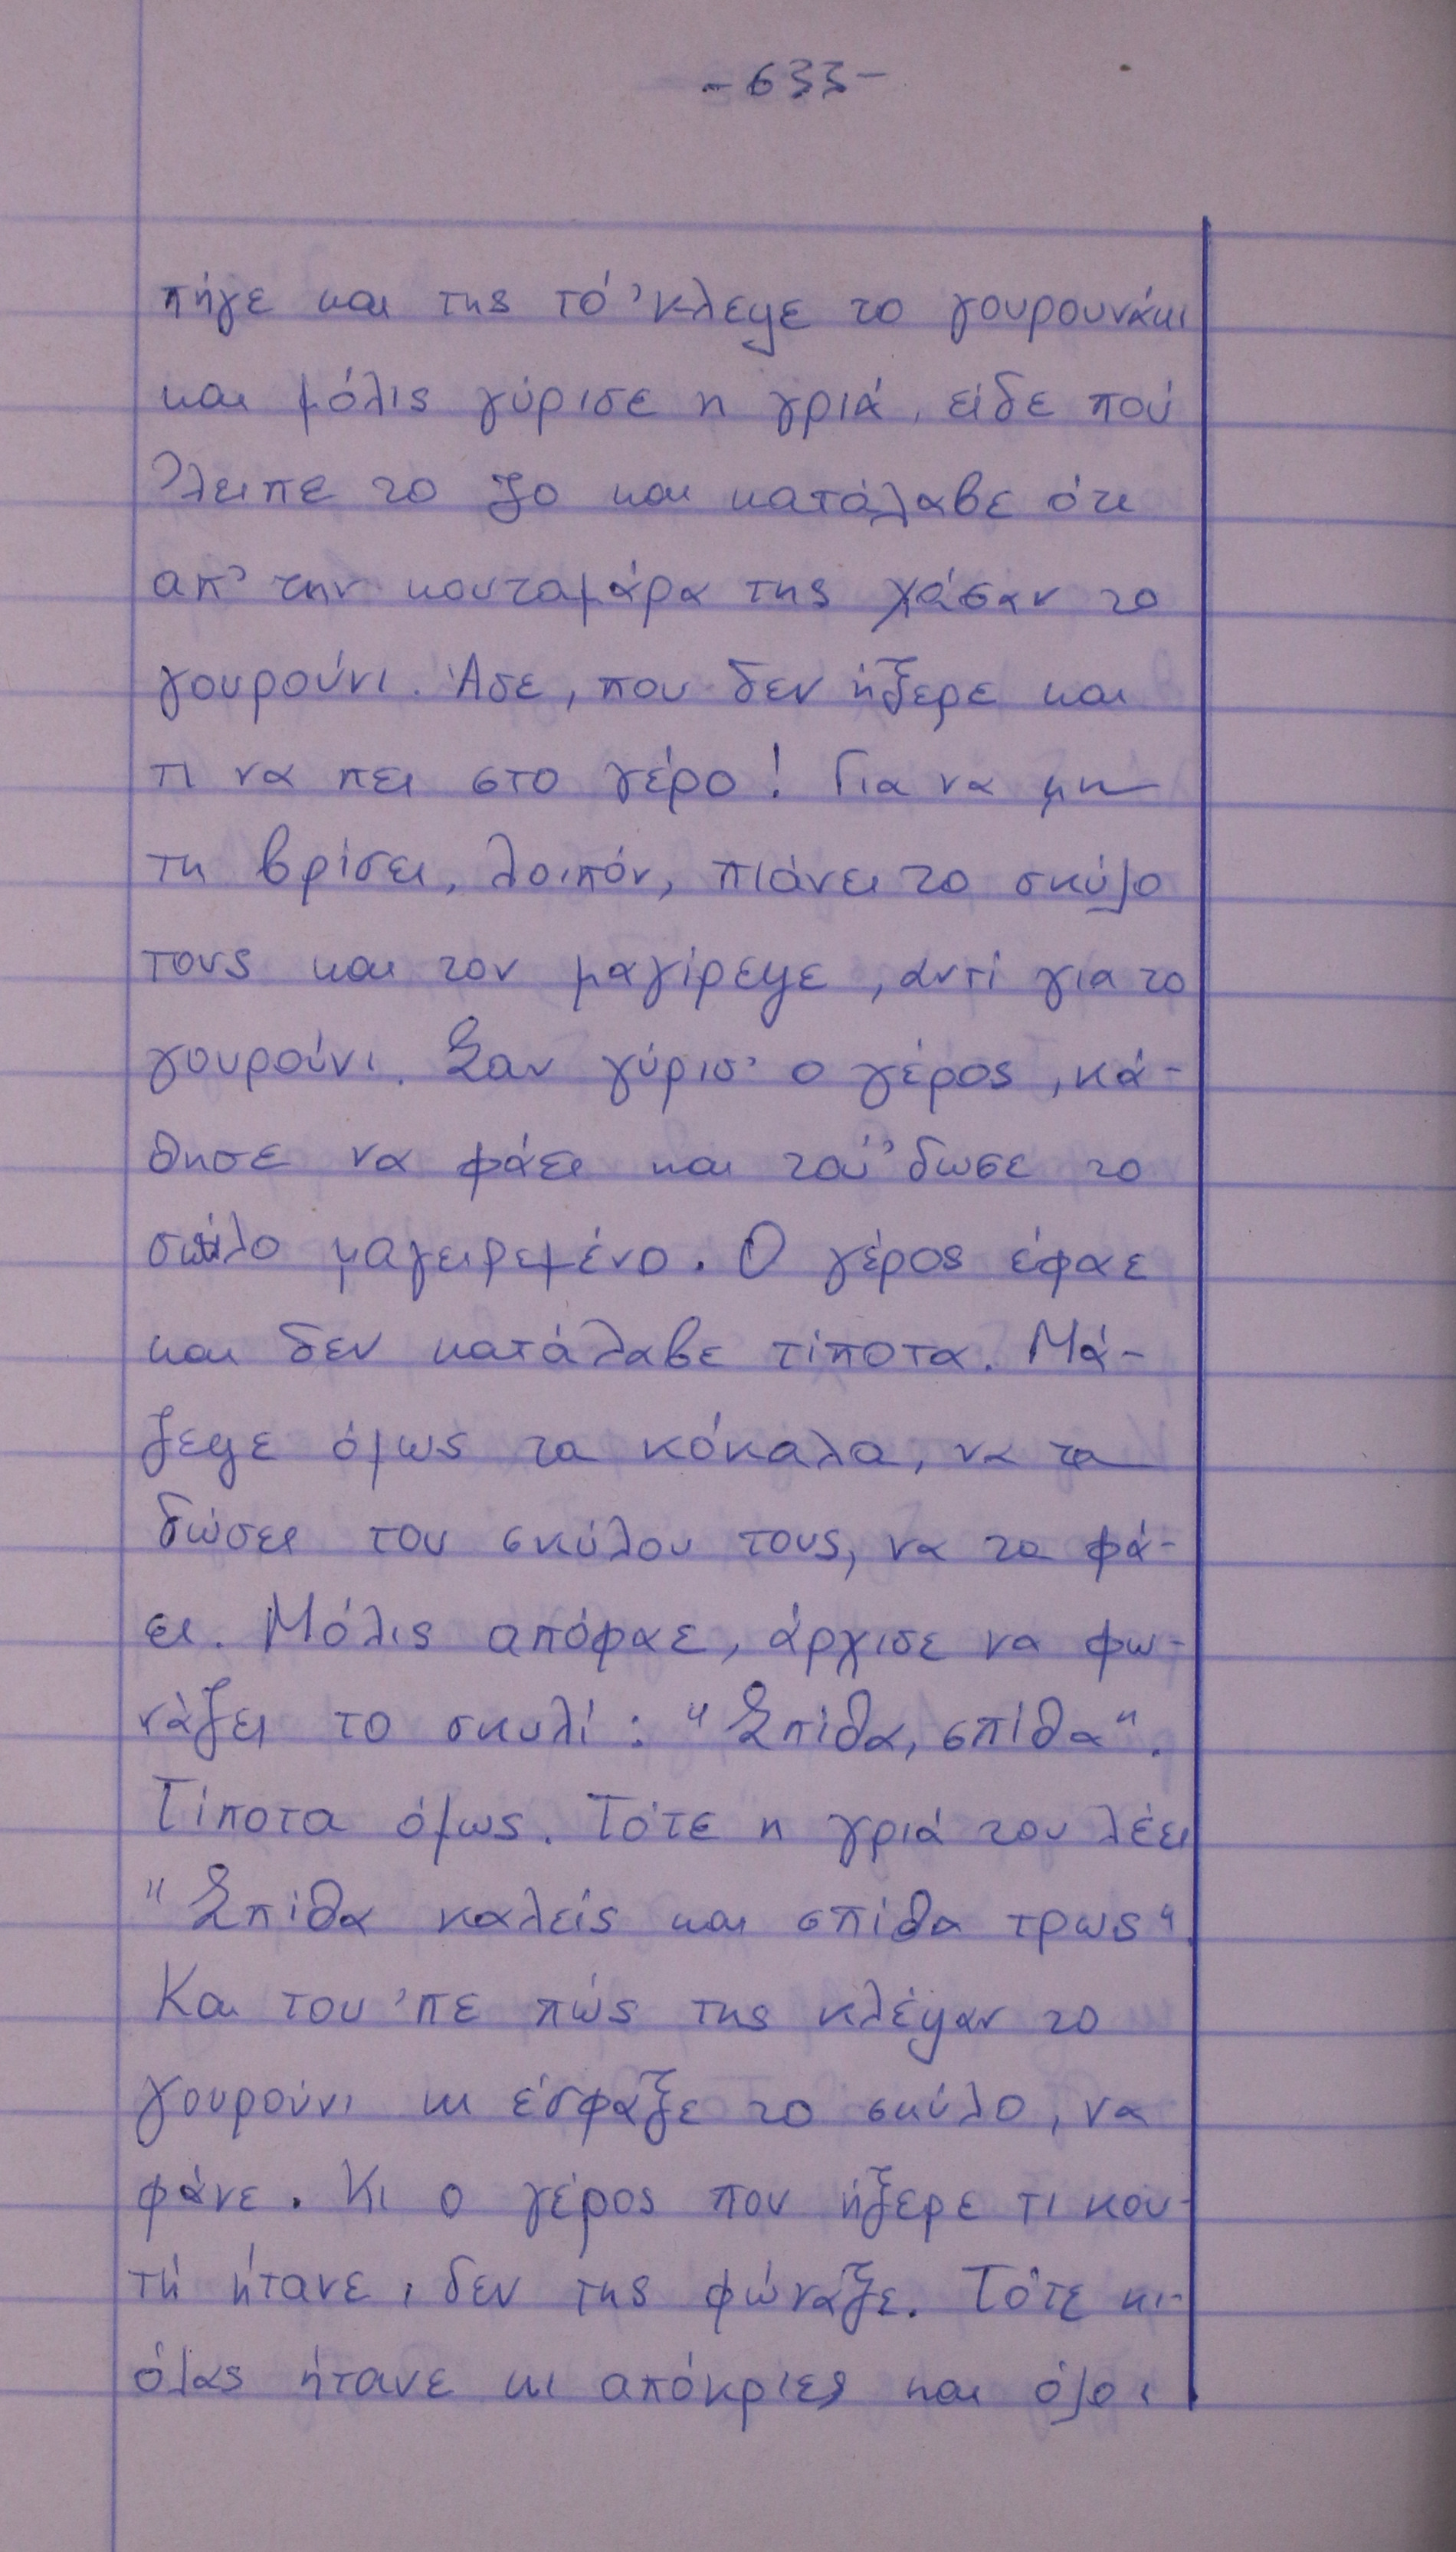 -633-
πήγε και της τό 'κλεψε το γουρουνάκι
και μόλις γύρισε η γριά, είδε πού
'λειπε το ζο και κατάλαβε ότι
απ' την κουταμάρα της χάσαν το
γουρούνι. Άσε, που δεν ήξερε και
τι να πει στο γέρο! Για να μη
τη βρίσει, λοιπόν, πιάνει το σκύλο
τους και τον μαγίρεψε, αντί για το
γουρούνι. Σαν γύρισ' ο γέρος, κά-
θησε να φάει και τού 'δωσε το
σκύλο μαγειρεμένο. Ο γέρος έφαε
και δεν κατάλαβε τίποτα. Μά-
ζεψε όμως τα κόκαλα, να τα
δώσει του σκύλου τους, να τα φά-
ει. Μόλις απόφαε, άρχισε να φω-
νάζει το σκυλί: "Σπίθα, σπίθα".
Τίποτα όμως. Τότε η γριά του λέει
"Σπίθα καλείς και σπίθα τρως".
Και του 'πε πώς της κλέψαν το
γουρούνι κι έσφαξε το σκύλο, να
φάνε. Κι ο γέρος που ήξερε τι κου-
τή ήτανε, δεν της φώναξε. Τότε κι-
όλας ήτανε κι απόκριες και όλοι